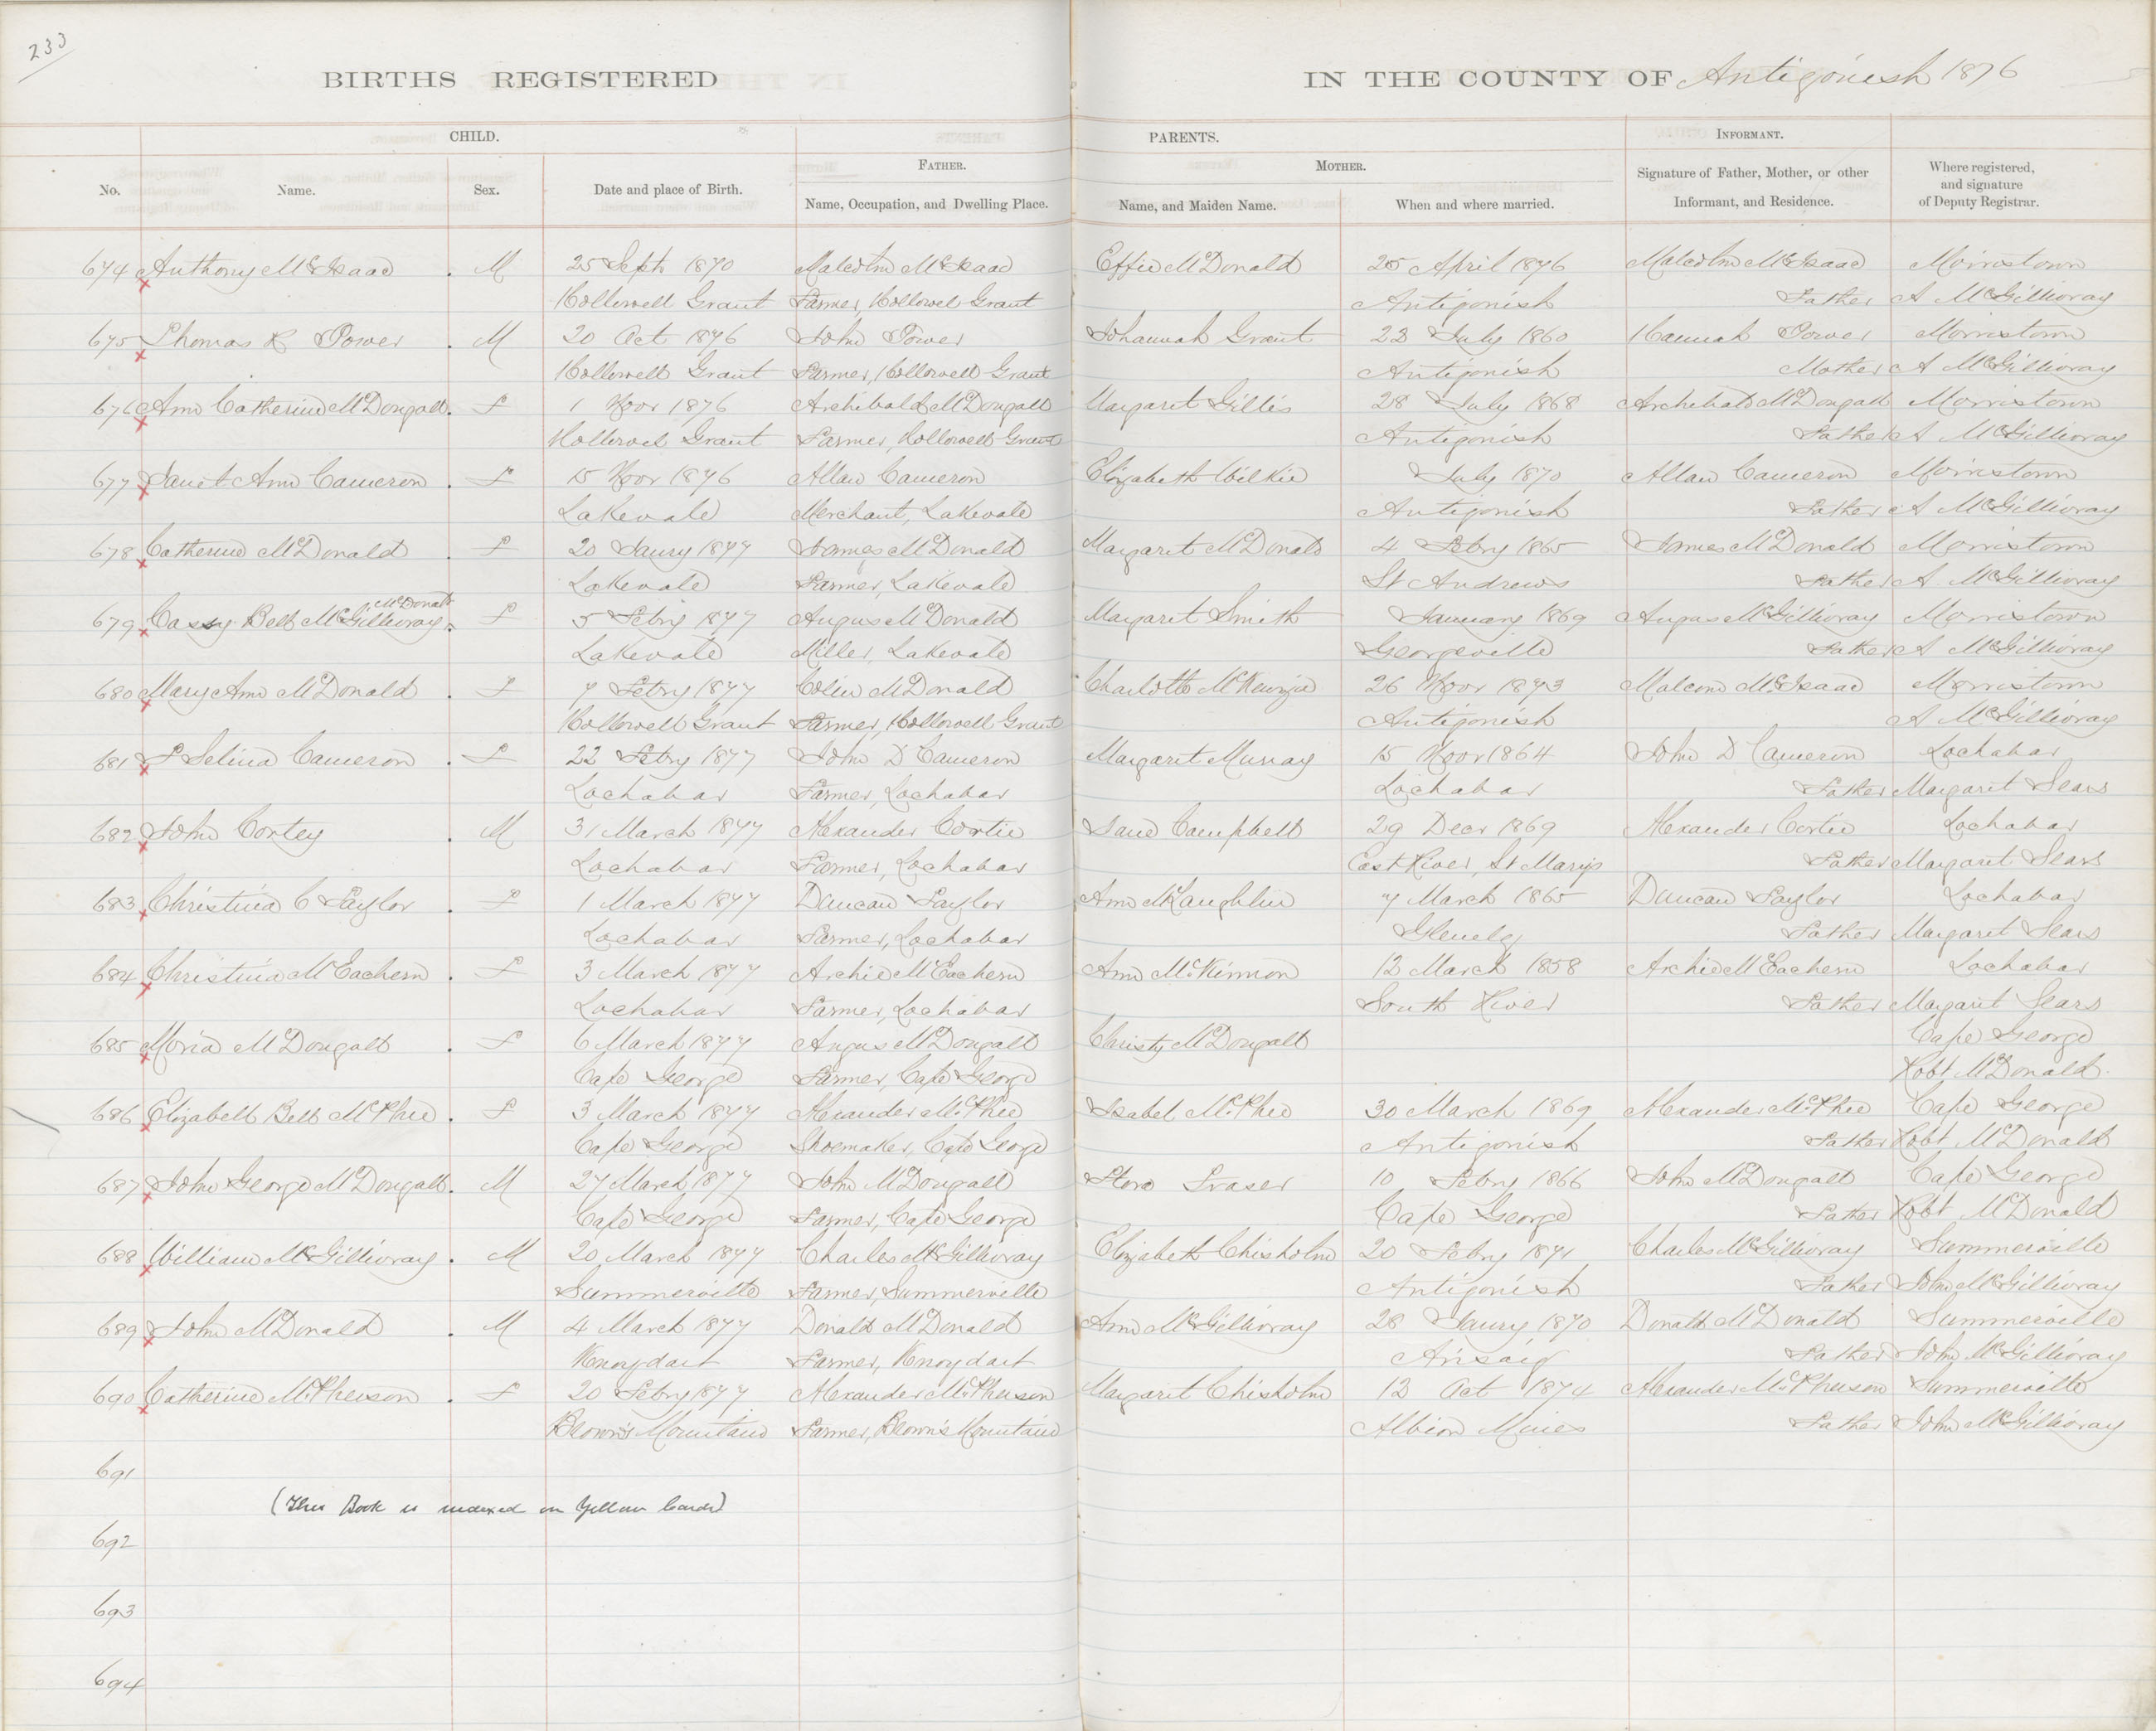 233
BIRTHS REGISTERED IN THE COUNTY OF Antigonish 1876
CHILD. PARENTS. INFORMANT.
FATHER. MOTHER.
No. Name. Sex. Date and place of Birth. Name, Occupation, and Dwelling Place. Name, and Maiden Name. When and where married. Signature of Father, Mother, or other Informant, and Residence. Where registered, and signature of Deputy Registrar.
674 Anthony McIsaac . M 25 Sept 1870 Malcolm McIsaac Effie McDonald 25 April 1876 Malcolm McIsaac Morristown
Hollowell Grant Farmer, Hollowel Grant Antigonish Father A McGillivray
675 Thomas R Power . M 20 Oct 1876 John Power Johannah Grant 23 July 1860 Hannah Power Morristown
Hollowell Grant Farmer, Hollowell Grant Antigonish Mother A McGillivray
676 Ann Catherine McDougall . F 1 Novr 1876 Archibald McDougall Margaret Gillis 28 July 1868 Archibald McDougall Morristown
Hollowel Grant Farmer, Hollowell Grant Antigonish Father A McGillivray
677 Janet Ann Cameron . F 15 Novr 1876 Allan Cameron Elizabeth Wilkie July 1870 Allan Cameron Morristown
Lakevale Merchant, Lakevale Antigonish Father A McGillivray
678 Catherine McDonald . F 20 Jaury 1877 James McDonald Margaret McDonald 4 Febry 1865 James McDonald Morristown
Lakevale Farmer, Lakevale St Andrews Father A. McGillivray
McDonald
679 Cassy Bell McGillivray . F 5 Febry 1877 Angus McDonald Margaret Smith January 1869 Angus McGillivray Morristown
Lakevale Miller, Lakevale Georgeville Father A McGillivray
680 Mary Ann McDonald . F 7 Febry 1877 Colin McDonald Charlotte McKenzie 26 Novr 1873 Malcom McIsaac Morristown
Hollowell Grant Farmer, Hollowell Grant Antigonish A McGillivray
681 F Selina Cameron . F 22 Febry 1877 John D Cameron Margaret Murray 15 Novr 1864 John D Cameron Lochabar
Lochabar Farmer, Lochabar Lochabar Father Margaret Sears
682 John Cortey . M 31 March 1877 Alexander Cortie Jane Campbell 29 Decr 1869 Alexander Cortie Lochabar
Lochabar Farmer, Lochabar East River, St Marys Father Margaret Sears
683 Christina C Taylor . F 1 March 1877 Duncan Taylor Ann McLaughlin 7 March 1865 Duncan Taylor Lochabar
Lochabar Farmer, Lochabar Glenelg Father Margaret Sears
684 Christina McEachern . F 3 March 1877 Archie McEachern Ann McKinnon 12 March 1858 Archie McEachern Lochabar
Lochabar Farmer, Lochabar South River Father Margaret Sears
685 Moria McDougall . F 6 March 1877 Angus McDougall Christy McDougall Cape George
Cape George Farmer, Cape George Robt McDonald
686 Elizabeth Bell McPhie . F 3 March 1877 Alexander McPhie Isabel McPhie 30 March 1869 Alexander McPhie Cape George
Cape George Shoemaker, Cape George Antigonish Father Robt McDonald
687 John George McDougall . M 27 March 1877 John McDougall Flora Fraser 10 Febry 1866 John McDougall Cape George
Cape George Farmer, Cape George Cape George Father Robt McDonald
688 William McGillivray . M 20 March 1877 Charles McGillivray Elizabeth Chisholm 20 Febry 1871 Charles McGillivray Summerville
Summerville Farmer, Summerville Antigonish Father John McGillivray
689 John McDonald . M 4 March 1877 Donald McDonald Ann McGillivray 28 Jaury 1870 Donald McDonald Summerville
Knoydart Farmer, Knoydart Arisaig Father John McGillivray
690 Catherine McPherson . F 20 Febry 1877 Alexander McPherson Margaret Chisholm 12 Oct 1874 Alexander McPherson Summerville
Brown's Mountain Farmer, Brown's Mountain Albion Mines Father John McGillivray
691
(This Book is indexed on Yellow Cards)
692
693
694